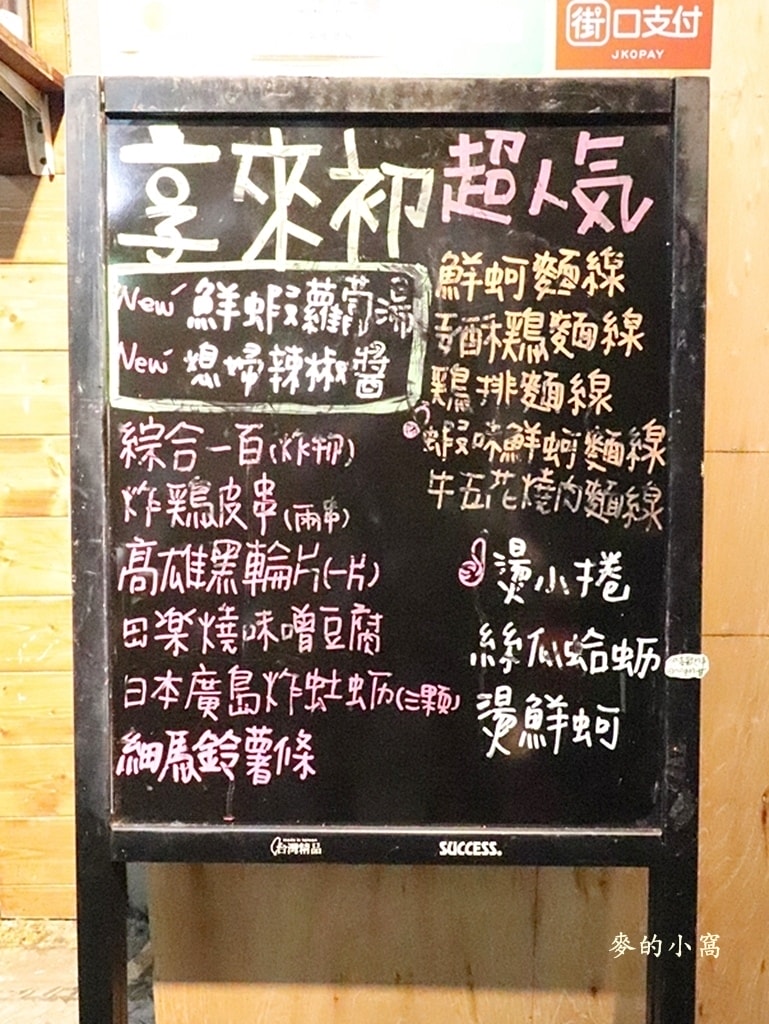 街口支付
JKOPAY
享來初
New 鮮蝦蘿蔔湯
New 媳婦辣椒醬
綜合一百(炸物)
炸鶏皮串(兩串)
高雄黑輪片(一片)
田楽燒味噌豆腐
日本廣島炸牡蛎(三顆)
細馬鈴薯條
超人気
鮮蚵麵線
酥鶏麵線
鶏排麵線
蝦味鮮蚵麵線
牛五花燒肉麵線
燙小捲
絲瓜蛤蛎
燙鮮蚵
made in taiwan
台灣精品
SUCCESS
麥的小窩